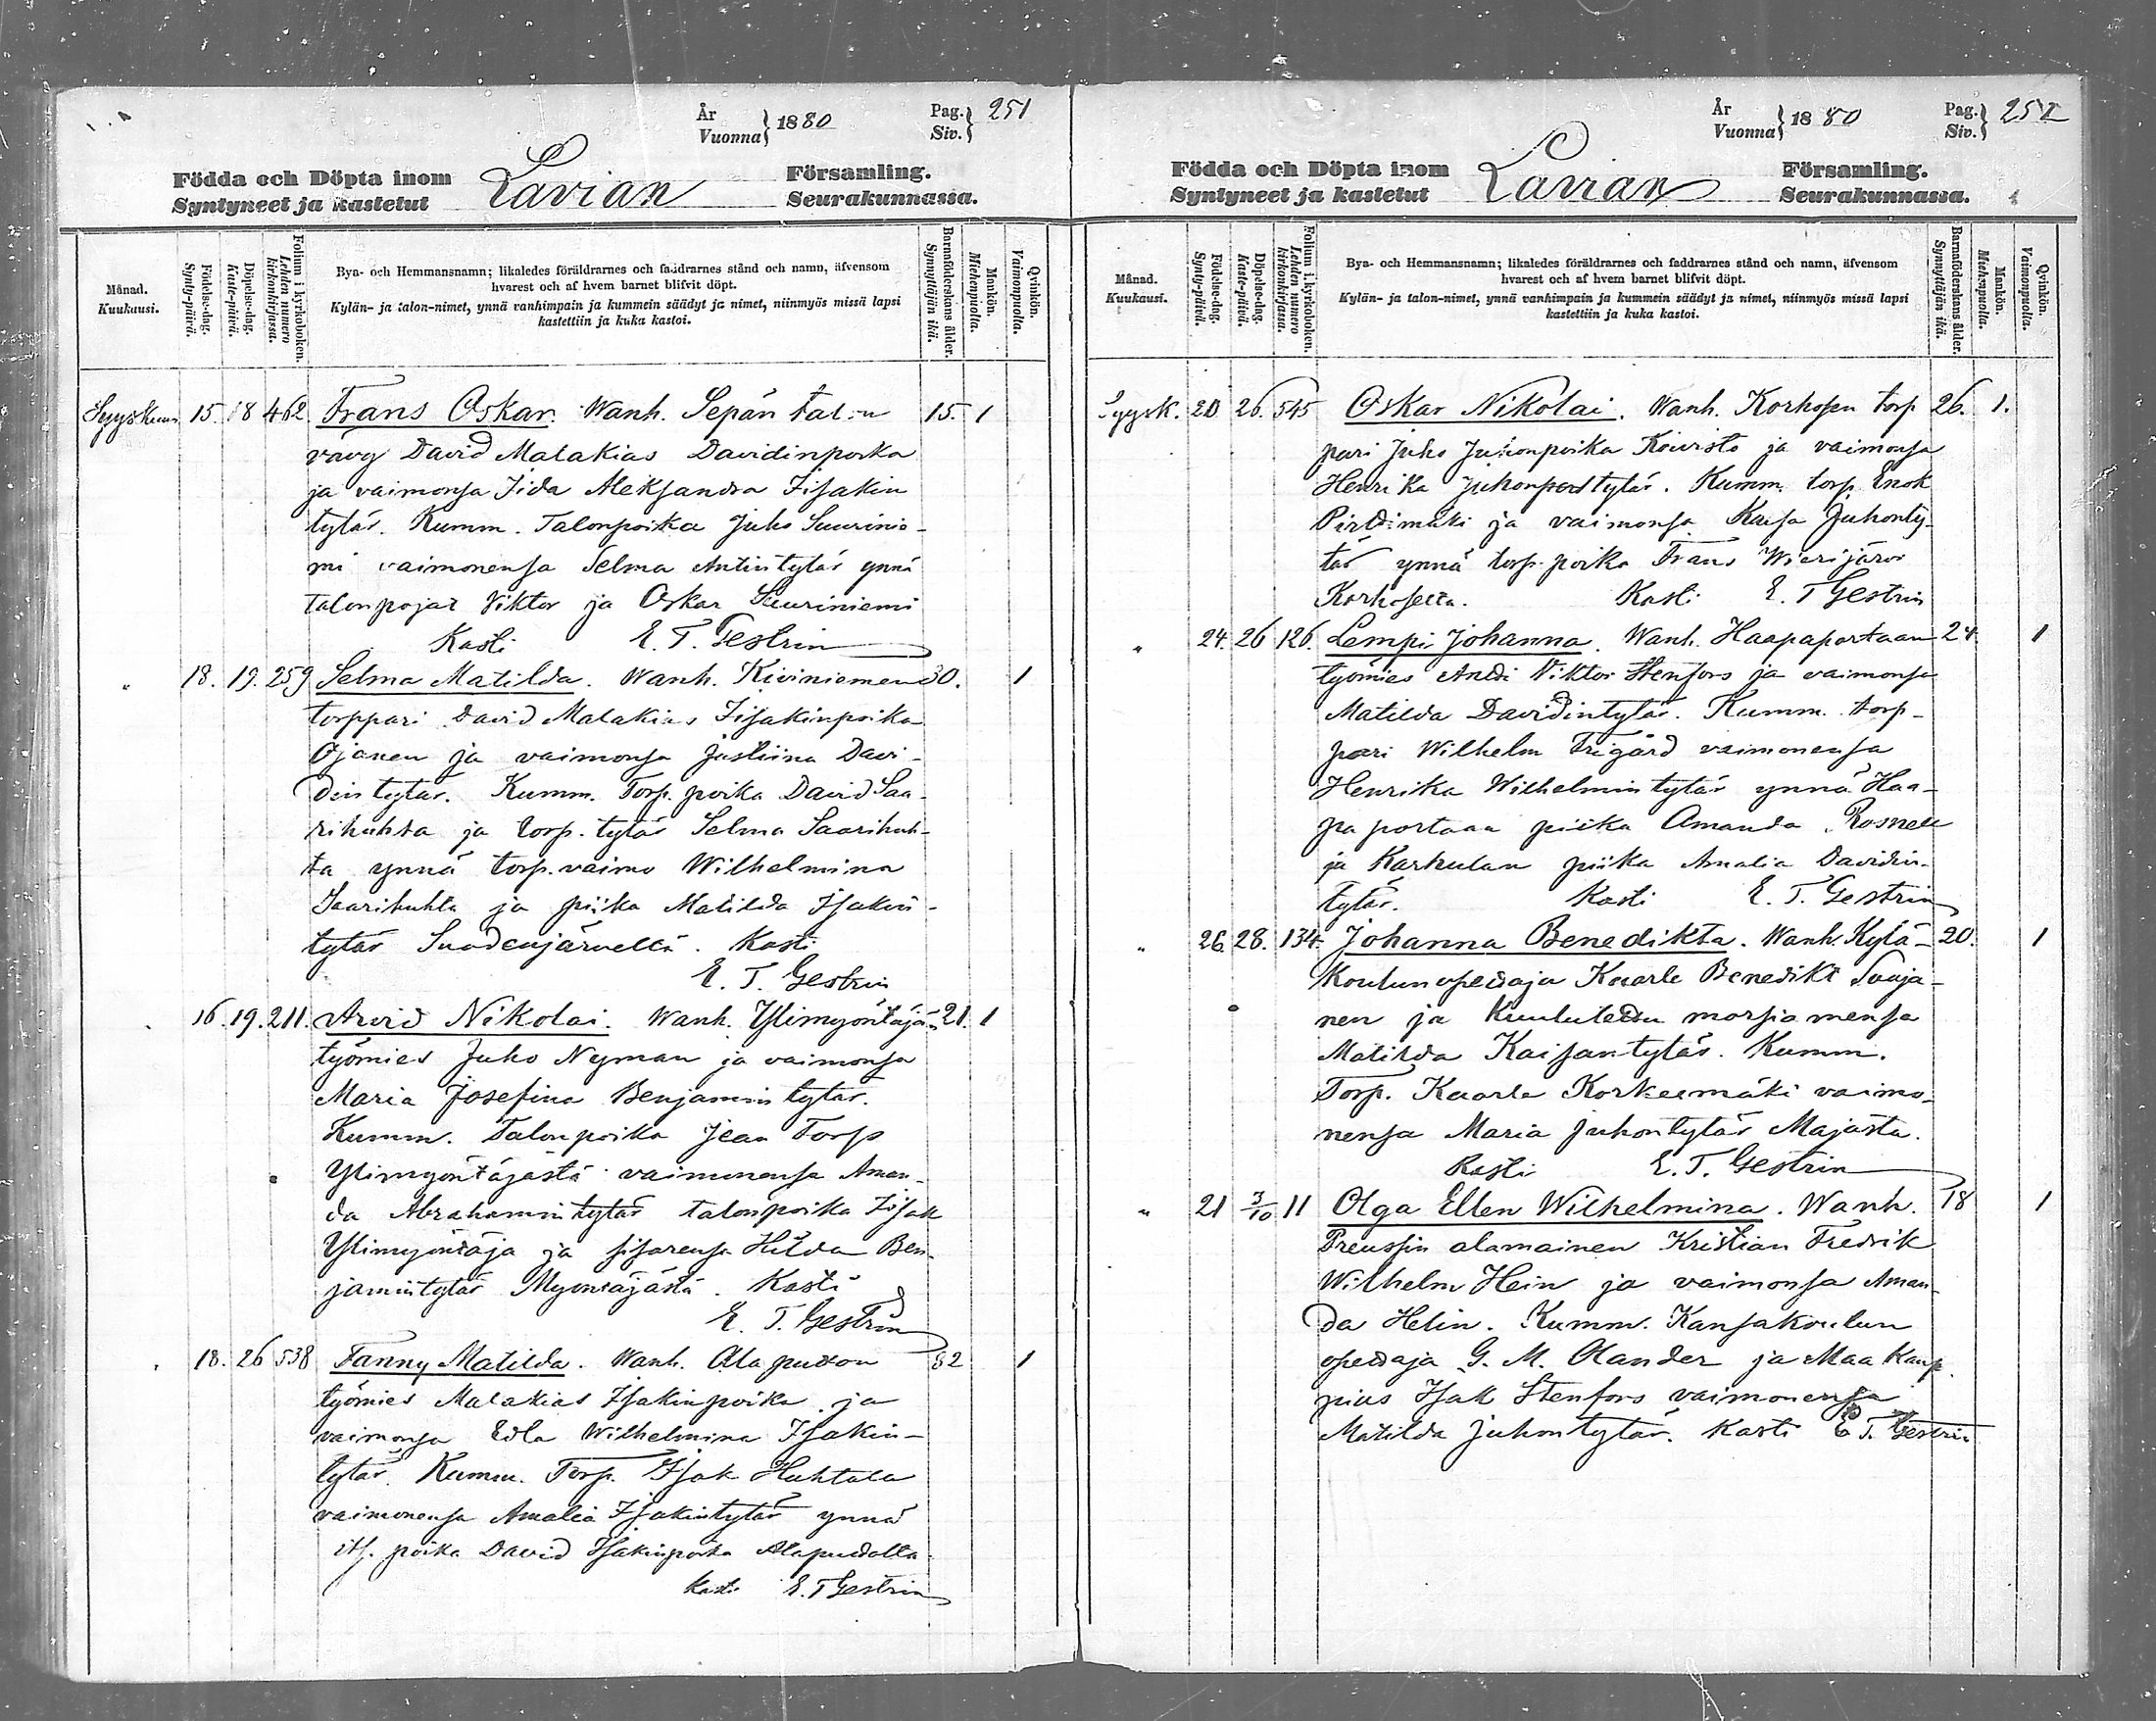 År
Vuonna } 1880
Pag.
Siv. } 251
Födda och Döpta inom
Syntyneet ja kastetut
Lavian
Församling.
Seurakunnassa.
Månad.
Kuukausi.
Födelse-dag.
Synty-päivä.
Döpelse-dag.
Kaste-päivä.
Folium i kyrkoboken.
Lehden numero kirkonkirjassa.
Bya- och Hemmansnamn; likaledes föräldrarnes och faddrarnes stånd och namn, äfvensom
hvarest och af hvem barnet blifvit döpt.
Kylän- ja talon-nimet, ynnä vanhimpain ja kummein säädyt ja nimet, niinmyös missä lapsi
kastettiin ja kuka kastoi.
Barnaföderskans ålder.
Synnyttäjän ikä.
Mankön.
Miehenpuolta.
Qvinkön.
Vaimonpuolta.
Syyskuun 15. 18 462. Frans Oskar. Wanh. Sepän talon 15. 1
vävy David Malakias Davidinpoika
ja vaimonsa Iida Aleksandra Iisakin
tytär. Kumm. Talonpoika Juho Suurinie-
mi vaimonensa Selma Antintytär ynnä
talonpojat Viktor ja Oskar Suuriniemi
Kasti E. T. Gestrin
" 18. 19. 259 Selma Matilda. Wanh. Kiviniemen 30. 1
torppari David Malakias Iisakinpoika
Ojanen ja vaimonsa Justiina Davi-
dintytär. Kumm. Torp. poika David Saa-
rihuhta ja torp. tytär Selma Saarihuh-
ta ynnä torp. vaimo Wilhelmina
Saarihuhta ja piika Matilda Isakin-
tytär Suodenjärveltä. Kasti
E. T. Gestrin
16. 19. 211. Arvid Nikolai. Wanh. Ylimyöntäjän 21. 1
työmies Juho Nyman ja vaimonsa
Maria Josefina Benjamintytär.
Kumm. Talonpoika Jean Torp
Ylimyöntäjästä vaimonensa Aman-
da Abrahamintytär talonpoika Iisak
Ylimyöntäjä ja sisarensa Hilda Ben-
jamintytär Myöntäjästä. Kasti
E. T. Gestrin
18. 26 538 Fanny Matilda. Wanh. Alapudon 32 1
työmies Malakias Isakinpoika ja
vaimonsa Edla Wilhelmina Isakin-
tytär. Kumm. Torp. Isak Huhtala
vaimonensa Amalia Isakintytär ynnä
its. poika David Isakinpoika Alapudolta.
Kasti E. T Gestrin
År
Vuonna } 1880
Pag.
Siv. } 252
Födda och Döpta inom
Syntyneet ja kastetut
Lavian
Församling.
Seurakunnassa.
Månad.
Kuukausi.
Födelse-dag.
Synty-päivä.
Döpelse-dag.
Kaste-päivä.
Folium i kyrkoboken.
Lehden numero kirkonkirjassa.
Bya- och Hemmansnamn; likaledes föräldrarnes och faddrarnes stånd och namn, äfvensom
hvarest och af hvem barnet blifvit döpt.
Kylän- ja talon-nimet, ynnä vanhimpain ja kummein säädyt ja nimet, niinmyös missä lapsi
kastettiin ja kuka kastoi.
Barnaföderskans ålder.
Synnyttäjän ikä.
Mankön.
Miehenpuolta.
Qvinkön.
Vaimonpuolta.
Syysk. 20 26. 545 Oskar Nikolai. Wanh. Korhosen torp 26. 1.
pari Juho Juhonpoika Koivisto ja vaimonsa
Henrika Juhontytär. Kumm. torp. Enok
Pirttimäki ja vaimonsa Kaisa Juhonty-
tär ynnä torp. poika Frans Wierijärvi
Korhoselta. Kasti E. T Gestrin
" 24. 26 126. Lempi Johanna. Wanh. Haapaportaan 24. 1
työmies Antti Viktor Stenfors ja vaimonsa
Matilda Davidintytär. Kumm. torp-
pari Wilhelm Frigård vaimonensa
Henrika Wilhelmintytär ynnä Haa-
paportaan piika Amanda Rosnell
ja Karhulan piika Amalia Davidin-
tytär. Kasti E. T. Gestrin
" 26. 28. 134. Johanna Benedikta. Wanh. Kylä- 20. 1
koulunopettaja Kaarle Benedikt Suoja-
nen ja kuulutettu morsiamensa
Matilda Kaisantytär. Kumm.
Torp. Kaarle Korkeemäki vaimo-
nensa Maria Juhontytär Majasta.
Kasti E. T. Gestrin
" 21 3/10 11 Olga Ellen Wilhelmina. Wanh. 18 1
Preussin alamainen Kristian Fredrik
Wilhelm Hein ja vaimonsa Aman-
da Helin. Kumm. Kansakoulun
opettaja G. M. Olander ja Maakaup-
pias Isak Stenfors vaimonensa
Matilda Juhontytär. Kasti E. T. Gestrin